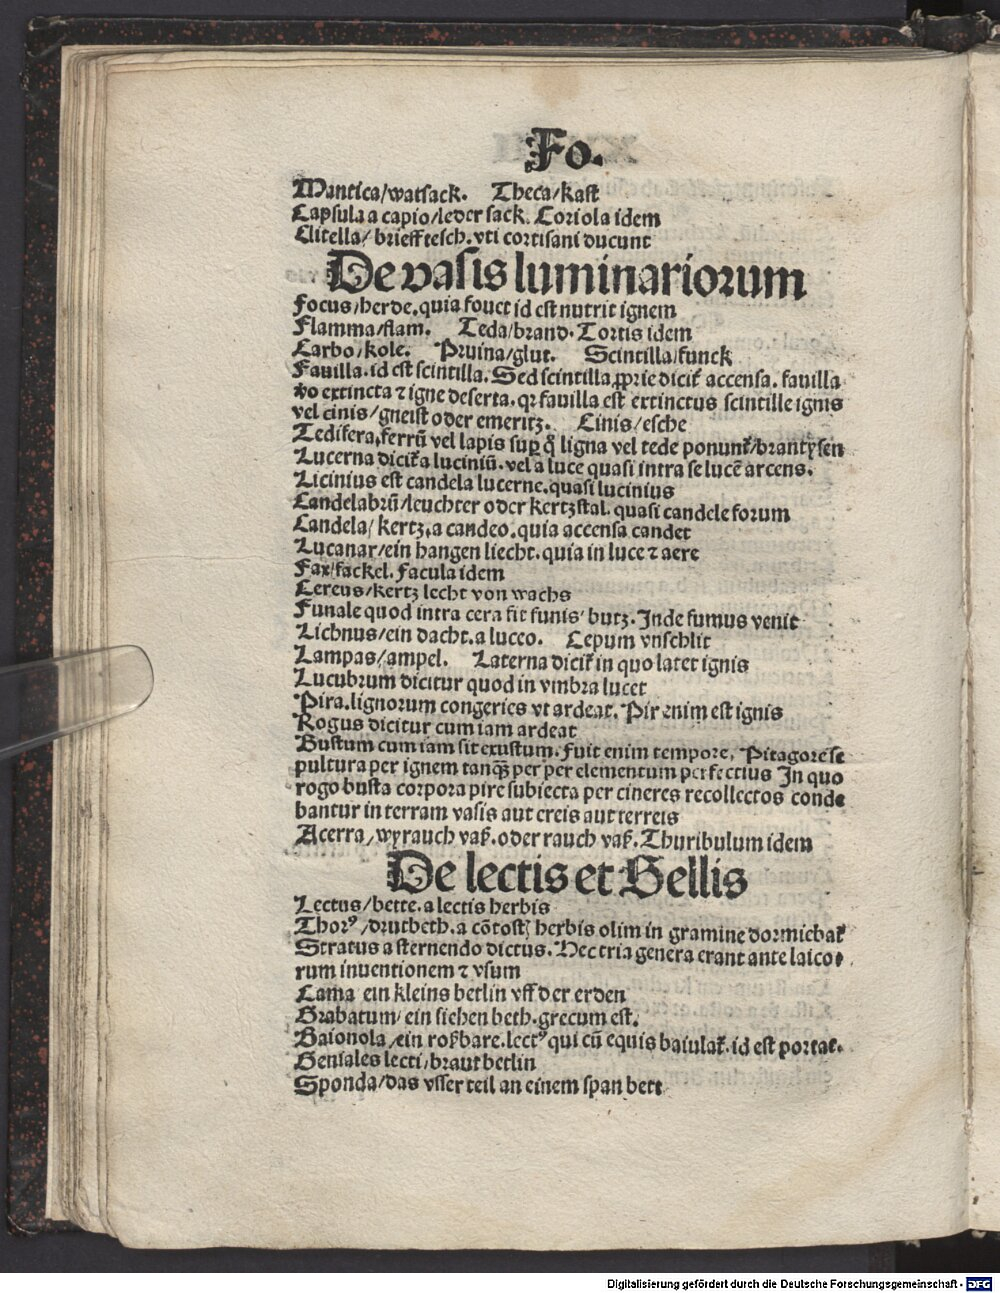 Fo.
Mantica/watsack. Theca/kast
Capsula a capio/leder sack. Coriola idem
Clitella/brieff tesch. vti cortisani ducunt
De vasis luminariorum
Focus/herde. quia fouet id est nutrit ignem
Flamma/flam. Teda/brand. Tortis idem
Carbo/kole. Pruina/glut. Scintilla/funck
Fauilla. id est scintilla. Sed scintilla ꝓprie dicit᷑ accensa. fauilla
ꝟo extincta ⁊ igne deserta. qꝛ fauilla est extinctus scintille ignis
vel cinis/gneist oder emeritz. Cinis/esche
Tedifera, ferrū vel lapis suꝑ ꝙ̄ ligna vel tede ponunt᷑/brantysen
Lucerna dicit᷑ a luciniū. vel a luce quasi intra se lucē arcens.
Licinius est candela lucerne. quasi lucinius
Candelabrū/leuchter oder kertzstal. quasi candele forum
Candela/kertz. a candeo. quia accensa candet
Lucanar/ein hangen liecht. quia in luce ⁊ aere
Fax/fackel. facula idem
Cereus/kertz lecht von wachs
Funale quod intra cera fit funis/butz. Inde fumus venit
Lichnus/ein dacht. a luceo. Cepum vnschlit
Lampas/ampel. Laterna dicit᷑ in quo latet ignis
Lucubrum dicitur quod in vmbra lucet
Pira. lignorum congeries vt ardeat. Pir enim est ignis
Rogus dicitur cum iam ardeat
Bustum cum iam sit exustum. fuit enim tempore, Pitagore se
pultura per ignem tanqȝ per per elementum perfectius In quo
rogo busta corpora pire subiecta per cineres recollectos conde
bantur in terram vasis aut ereis aut terreis
Acerra/wyrauch vaß. oder rauch vaß. Thuribulum idem
De lectis et Sellis
Lectus/bette. a lectis herbis
Thorꝰ/drutbeth. a cōtostꝭ herbis olim in gramine dormiebāt
Stratus a sternendo dictus. Hec tria genera erant ante laico
rum inuentionem ⁊ vsum
Cama ein kleins betlin vff der erden
Grabatum/ein siehen beth. grecum est.
Baionola/ein roßbare. lectꝰ qui cū equis baiulat᷑. id est portat᷑.
Geniales lecti/braut betlin
Sponda/das vsser teil an einem span bett
Digitalisierung gefördert durch die Deutsche Forschungsgemeinschaft - DFG